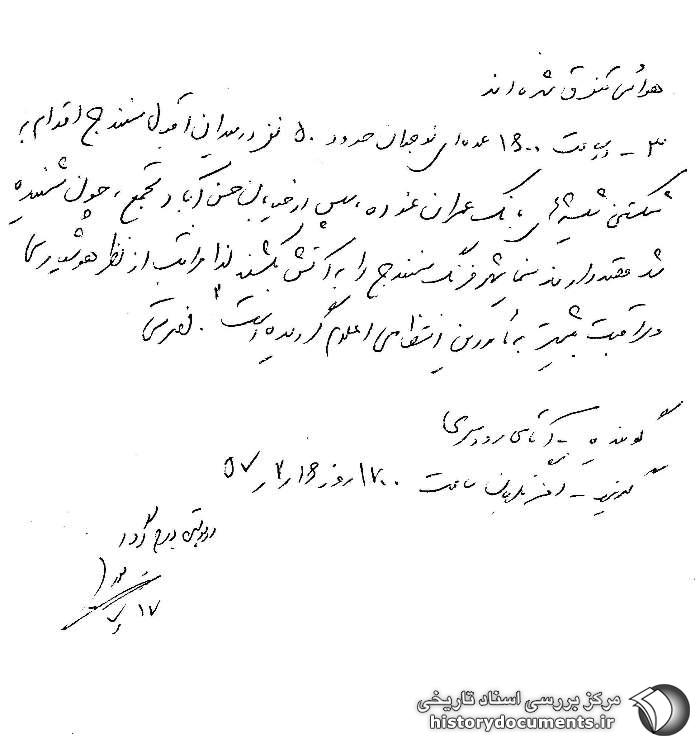 هوائی متفرق شده‌اند
۳- ساعت ۱۶۰۰ عده‌ای نوجوان حدود ۵۰ نفر در میدان اقبال سنندج اقدام به
شکستن شیشه‌های بانک عمران نموده، سپس در خیابان حسن‌آباد تجمع، چون شنیده
شد قصد دارند سینما شهر فرنگ سنندج را به آتش بکشند لذا مراتب از نظر هوشیاری
و مراقبت بیشتر به مأمورین انتظامی اعلام گردیده است. نصرتی
گوینده – آقای رودسری
گیرنده – ساعت ۱۷۰۰ روز ۱۶/۷/۵۷
در بولتن درج گردد
۱۷/۷
مرکز بررسی اسناد تاریخی
historydocuments.ir